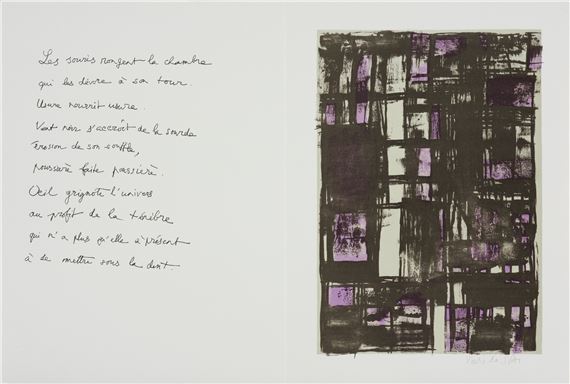 Les souris rongent la chambre
qui les dévore à son tour.
Usure nourrit usure.
Vent noir s'accroît de la sourde
érosion de son souffle,
poussière faite
Oeil grignote l'univers
au profit de la ténèbre
qui n'a plus qu'elle à présent
à se mettre sous la dent.